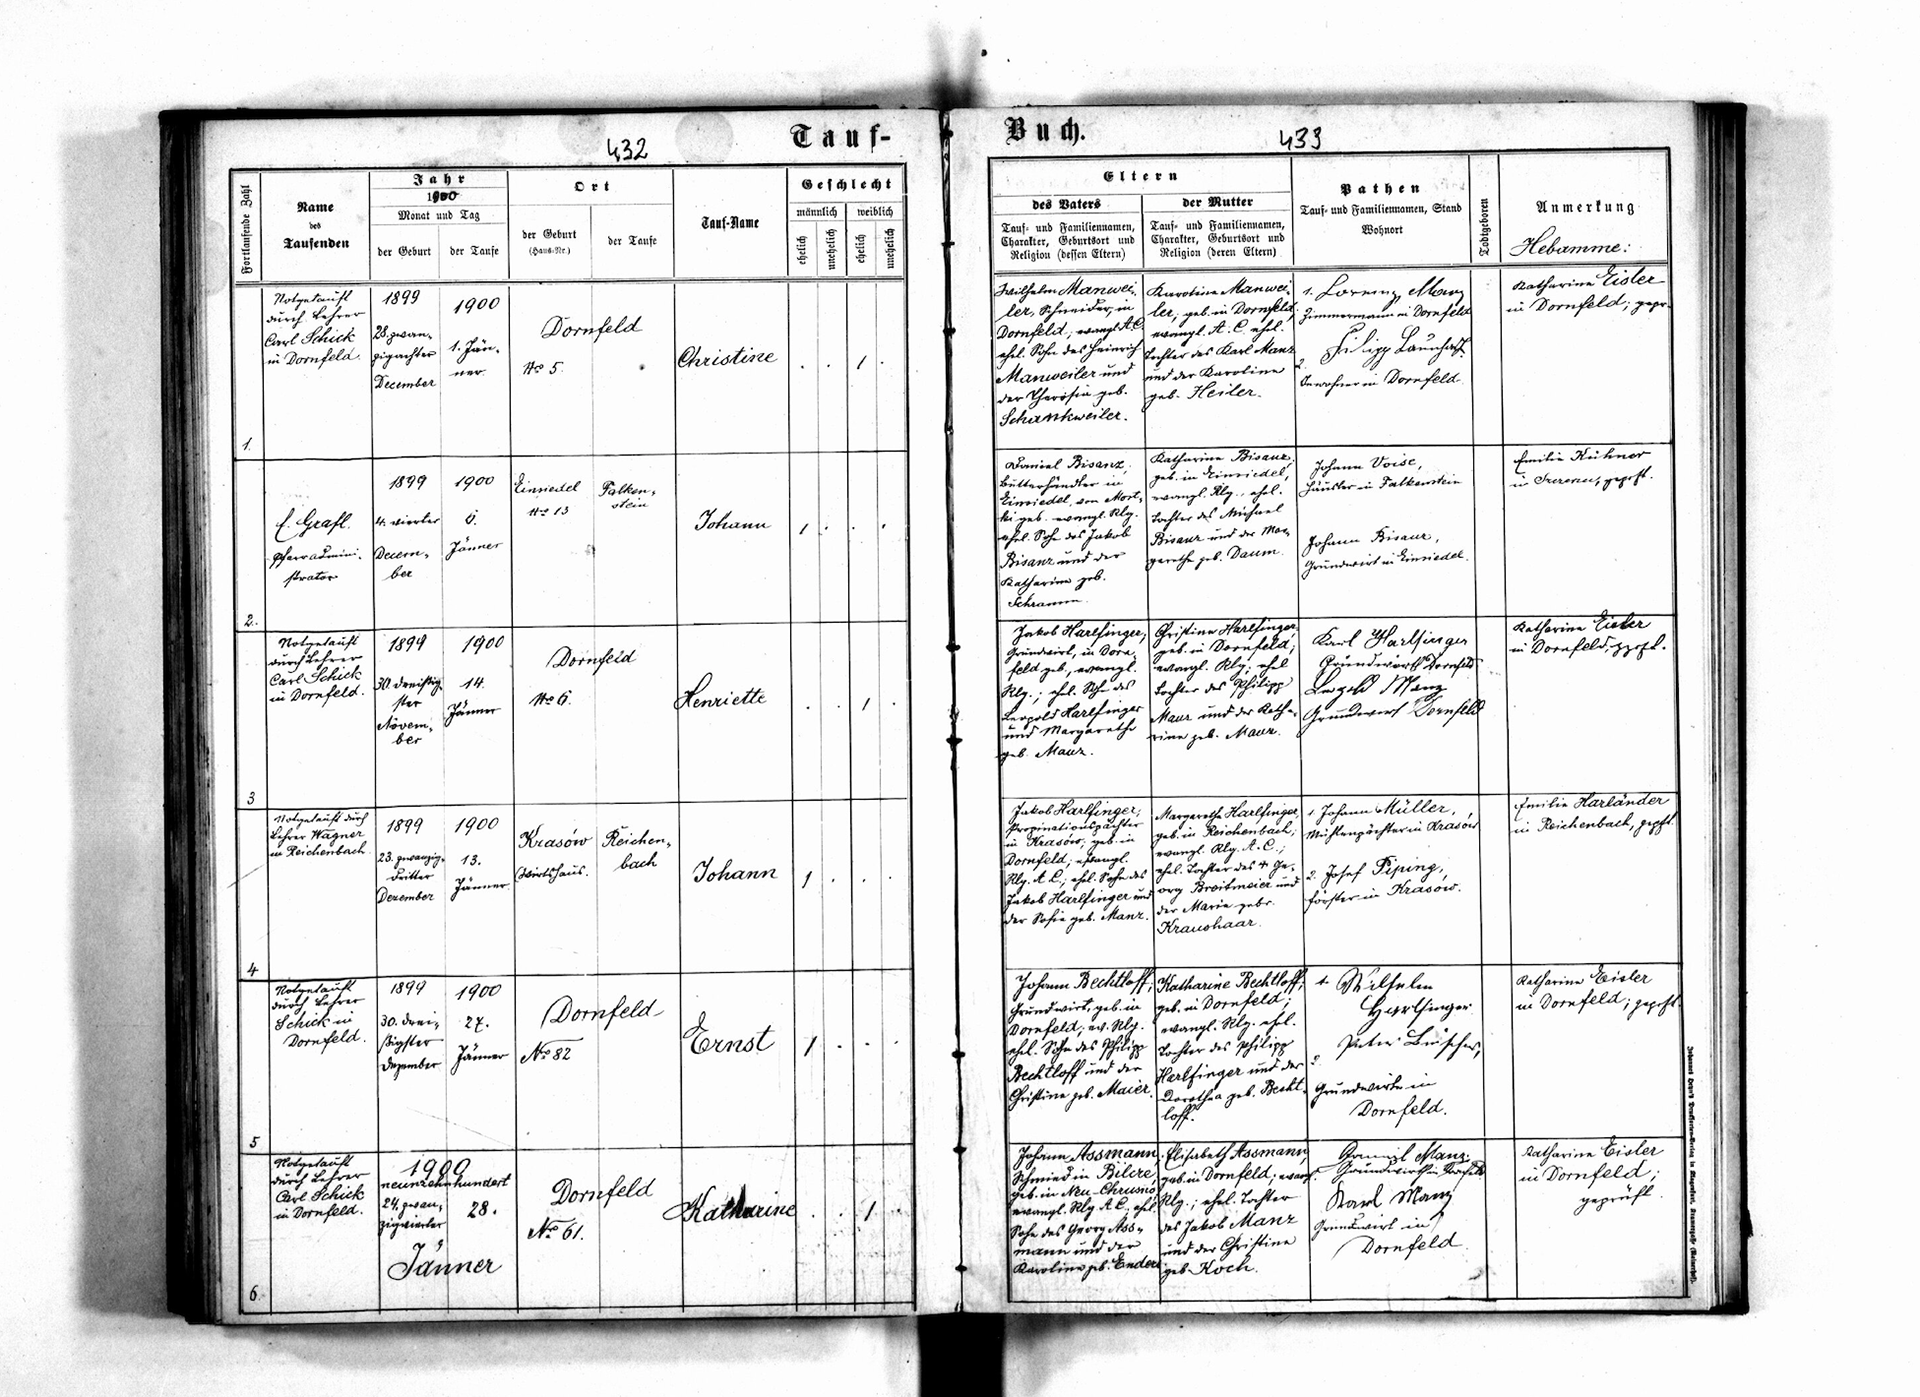 432
Tauf-
Fortlaufende Zahl
Name
des
Taufenden
Jahr
1900
Monat und Tag
der Geburt
der Taufe
Ort
der Geburt
(Haus-Nr.)
der Taufe
Tauf-Name
Geschlecht
männlich
weiblich
ehelich
unehelich
ehelich
unehelich
Buch.
433
Eltern
des Vaters
Tauf- und Familiennamen,
Charakter, Geburtsort und
Religion (dessen Eltern)
der Mutter
Tauf- und Familiennamen,
Charakter, Geburtsort und
Religion (deren Eltern)
Pathen
Tauf- und Familiennamen, Stand
Wohnort
Todtgeboren
Anmerkung
Hebamme:
1.
Notgetauft
durch Lehrer
Carl Schick
in Dornfeld.
1899
28. zwan-
zigachter
December
1900
1. Jän-
ner
Dornfeld
No 5.
Christine
1
Wilhelm Manwei-
ler, Schneider, in
Dornfeld, evangl. A.C.
ehel. Sohn des Heinrich
Manweiler und
der Theresia geb.
Schankweiler.
Karoline Manwei-
ler, geb. in Dornfeld,
evangl. A. C. ehel.
Tochter des Karl Manz
und der Karoline
geb. Heiler.
1. Lorenz Manz
Zimmermann in Dornfeld
2. Filipp
in Dornfeld.
Katharine Eisler
in Dornfeld; gepr.
2.
E. Grafl.
Pfarradmini-
strator
1899
4. vierter
Decem-
ber
1900
6.
Jänner
Einsiedel
No 13
Falken-
stein
Johann
1
Daniel Bisanz,
Butterhändler in
Einsiedel, von
geb. evangl. Rlg.
ehel. Sohn des Jakob
Bisanz und der
Katharina geb.
Schramm.
Katharine Bisanz,
geb. in Einsiedel,
evangl. Rlg., ehel.
Tochter des Michael
Bisanz und der Mar-
garethe geb. Daum.
Johann Voise,
Häusler in Falkenstein
Johann Bisanz,
Grundwirt in Einsiedel.
Emilie Kühner
in geprft.
3
Notgetauft
durch Lehrer
Carl Schick
in Dornfeld.
1899
30. dreißig-
ster
Novem-
ber
1900
14.
Jänner
Dornfeld
No 6.
Henriette
1
Jakob Harlfinger,
Grundwirt, in Dorn-
feld geb., evangl.
Rlg.; ehel. Sohn des
Leopold Harlfinger
und Margarethe
geb. Manz.
Christine Harlfinger,
geb. in Dornfeld,
evangl. Rlg. ehel
Tochter des Philipp
Manz und der Katha-
rine geb. Manz.
Karl Harlfinger
Grundwirth Dornfeld
Leopold Manz
Grundwirt Dornfeld
Katharine Eisler
in Dornfeld, geprft.
4
Notgetauft durch
Lehrer Wagner
in Reichenbach.
1899
23. zwanzig-
dritter
Dezember
1900
13.
Jänner
Krasów
Wirtshaus.
Reichen-
bach
Johann
1
Jakob Harlfinger,
Propinationspächter
in Krasów, geb. in
Dornfeld, evangl.
Rlg. A.C.; ehel. Sohn des
Jakob Harlfinger und
der Sofie geb. Manz.
Margareth Harlfinger,
geb. in Reichenbach,
evangl. Rlg. A.C.;
ehel. Tochter des + Ge-
org Breitmeier und
der Marie gebr.
Kraushaar.
1. Johann Müller,
Mühlenpächter in Krasów
2. Josef Piping,
Förster in Krasów.
Emilie Harländer
in Reichenbach, geprft.
5
Notgetauft
durch Lehrer
Schick in
Dornfeld.
1899
30. drei-
ßigster
Dezember
1900
27.
Jänner
Dornfeld
No 82
Ernst
1
Johann Bechtloff,
Grundwirt, geb. in
Dornfeld, ev. Rlg.
ehel. Sohn des Philipp
Bechtloff und der
Christine geb. Maier.
Katharine Bechtloff,
geb. in Dornfeld;
evangl. Rlg. ehel.
Tochter des Philipp
Harlfinger und der
Dorothea geb. Becht-
loff.
1. Wilhelm
Harlfinger
2. Peter
Grundwirte in
Dornfeld.
Katharine Eisler
in Dornfeld; geprft.
6
Notgetauft
durch Lehrer
Carl Schick
in Dornfeld.
1900
neunzehnhundert
24. zwan-
zigvierter
28.
Jänner
Dornfeld
No 61.
Katharine
1
Johann Assmann,
Schmied in Bilcze,
geb. in Neu-Chrusno,
evangl. Rlg. A.C., ehel.
Sohn des Georg Ass-
mann und der
Karoline geb. Enders
Elisabeth Assmann,
geb. in Dornfeld, evang.
Rlg.; ehel. Tochter
des Jakob Manz
und der Christine
geb. Koch.
Manz
Grundwirth in Dornfeld
Karl Manz
Grundwirt in
Dornfeld.
Katharine Eisler
in Dornfeld;
geprüft.